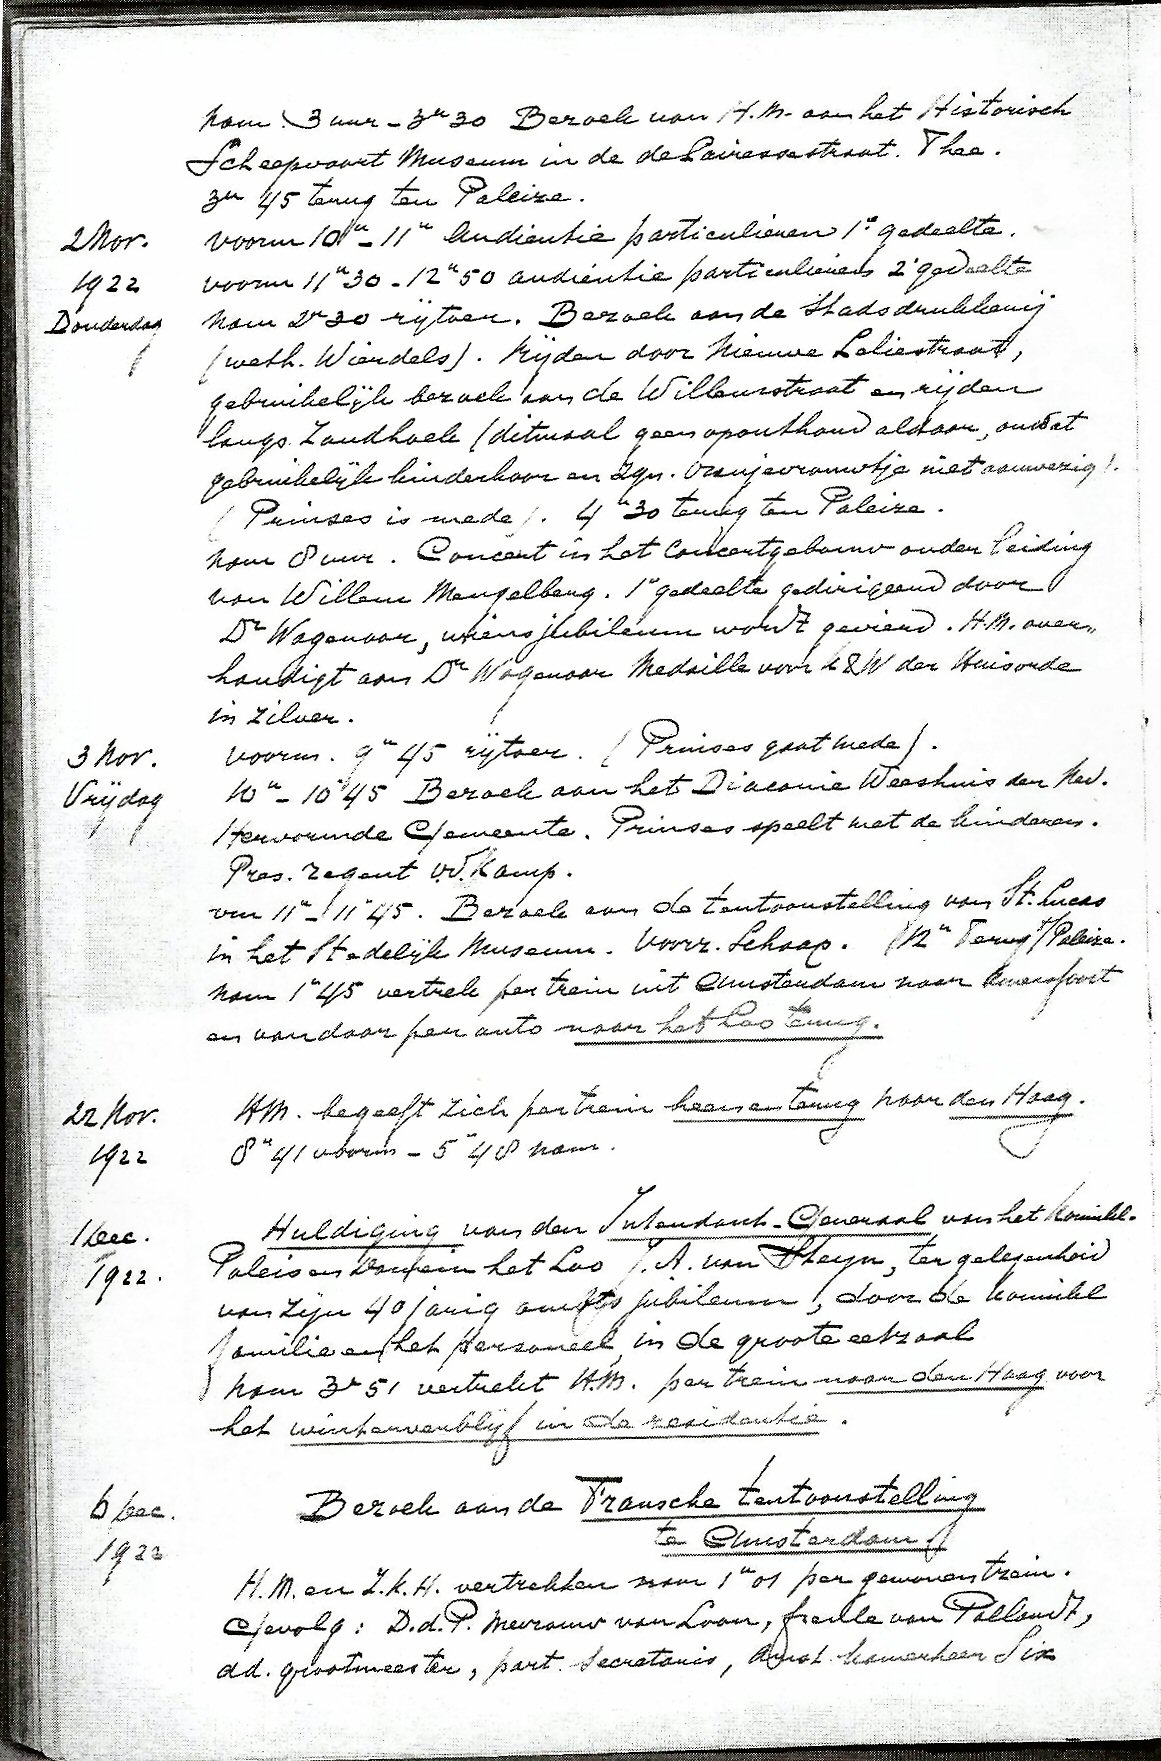 nam. 3 uur - 3ᵘ30 Bezoek van H.M. aan het Historisch
Scheepvaart Museum in de de Lairessestraat. Thee.
3ᵘ 45 terug ten Paleize.
2 Nov. voorm 10ᵘ - 11ᵘ Audientie particulieren 1ᵉ gedeelte.
1922 voorm 11ᵘ30 - 12ᵘ50 audientie particulieren 2ᵉ gedeelte
Donderdag nam 2ᵘ30 rijtoer. Bezoek aan de Stadsdrukkerij
(weth. Wierdels). Rijden door Nieuwe Leliestraat,
gebruikelijk bezoek aan de Willemsstraat en rijden
langs Zandhoek (ditmaal geen oponthoud aldaar, omdat
gebruikelijk kinderkoor en zgn. Oranjevrouwtje niet aanwezig).
(Prinses is mede). 4ᵘ30 terug ten Paleize.
nam 8 uur. Concert in het Concertgebouw onder leiding
van Willem Mengelberg. 1ᵉ gedeelte gedirigeerd door
Dʳ Wagenaar, wiens jubileum wordt gevierd. H.M. over-
handigt aan Dʳ Wagenaar Medaille voor K&W der Huisorde
in zilver.
3 Nov. voorm. 9ᵘ45 rijtoer. (Prinses gaat mede).
Vrijdag 10ᵘ - 10ᵘ45 Bezoek aan het Diaconie Weeshuis der Ned.
Hervormde Gemeente. Prinses speelt met de kinderen.
Pres. regent v.d. Kamp.
vm 11ᵘ - 11ᵘ45. Bezoek aan de tentoonstelling van St. Lucas
in het Stedelijk Museum. Voorz. Schaap. (12ᵘ Terug t/Paleize.
nam 1ᵘ45 vertrek per trein uit Amsterdam naar Amersfoort
en vandaar per auto naar het Loo terug.
22 Nov. H.M. begeeft zich per trein heen en terug naar den Haag.
1922 8ᵘ41 voorm - 5ᵘ48 nam.
1 Dec. Huldiging van den Intendant-Generaal van het Koninkl.
1922. Paleis en Domein het Loo J.A. van Steyn, ter gelegenheid
van zijn 40 jarig ambts jubileum, door de Koninkl
familie en het personeel in de groote eetzaal
nam 3ᵘ51 vertrekt H.M. per trein naar den Haag voor
het winterverblijf in de residentie.
6 Dec. Bezoek aan de Fransche tentoonstelling
1922 te Amsterdam
H.M. en Z.K.H. vertrekken nam 1ᵘ01 per gewonen trein.
Gevolg: D.d.P. Mevrouw van Loon, freule van Pallandt,
dd. grootmeester, part. Secretaris, Amst. kamerheer Six